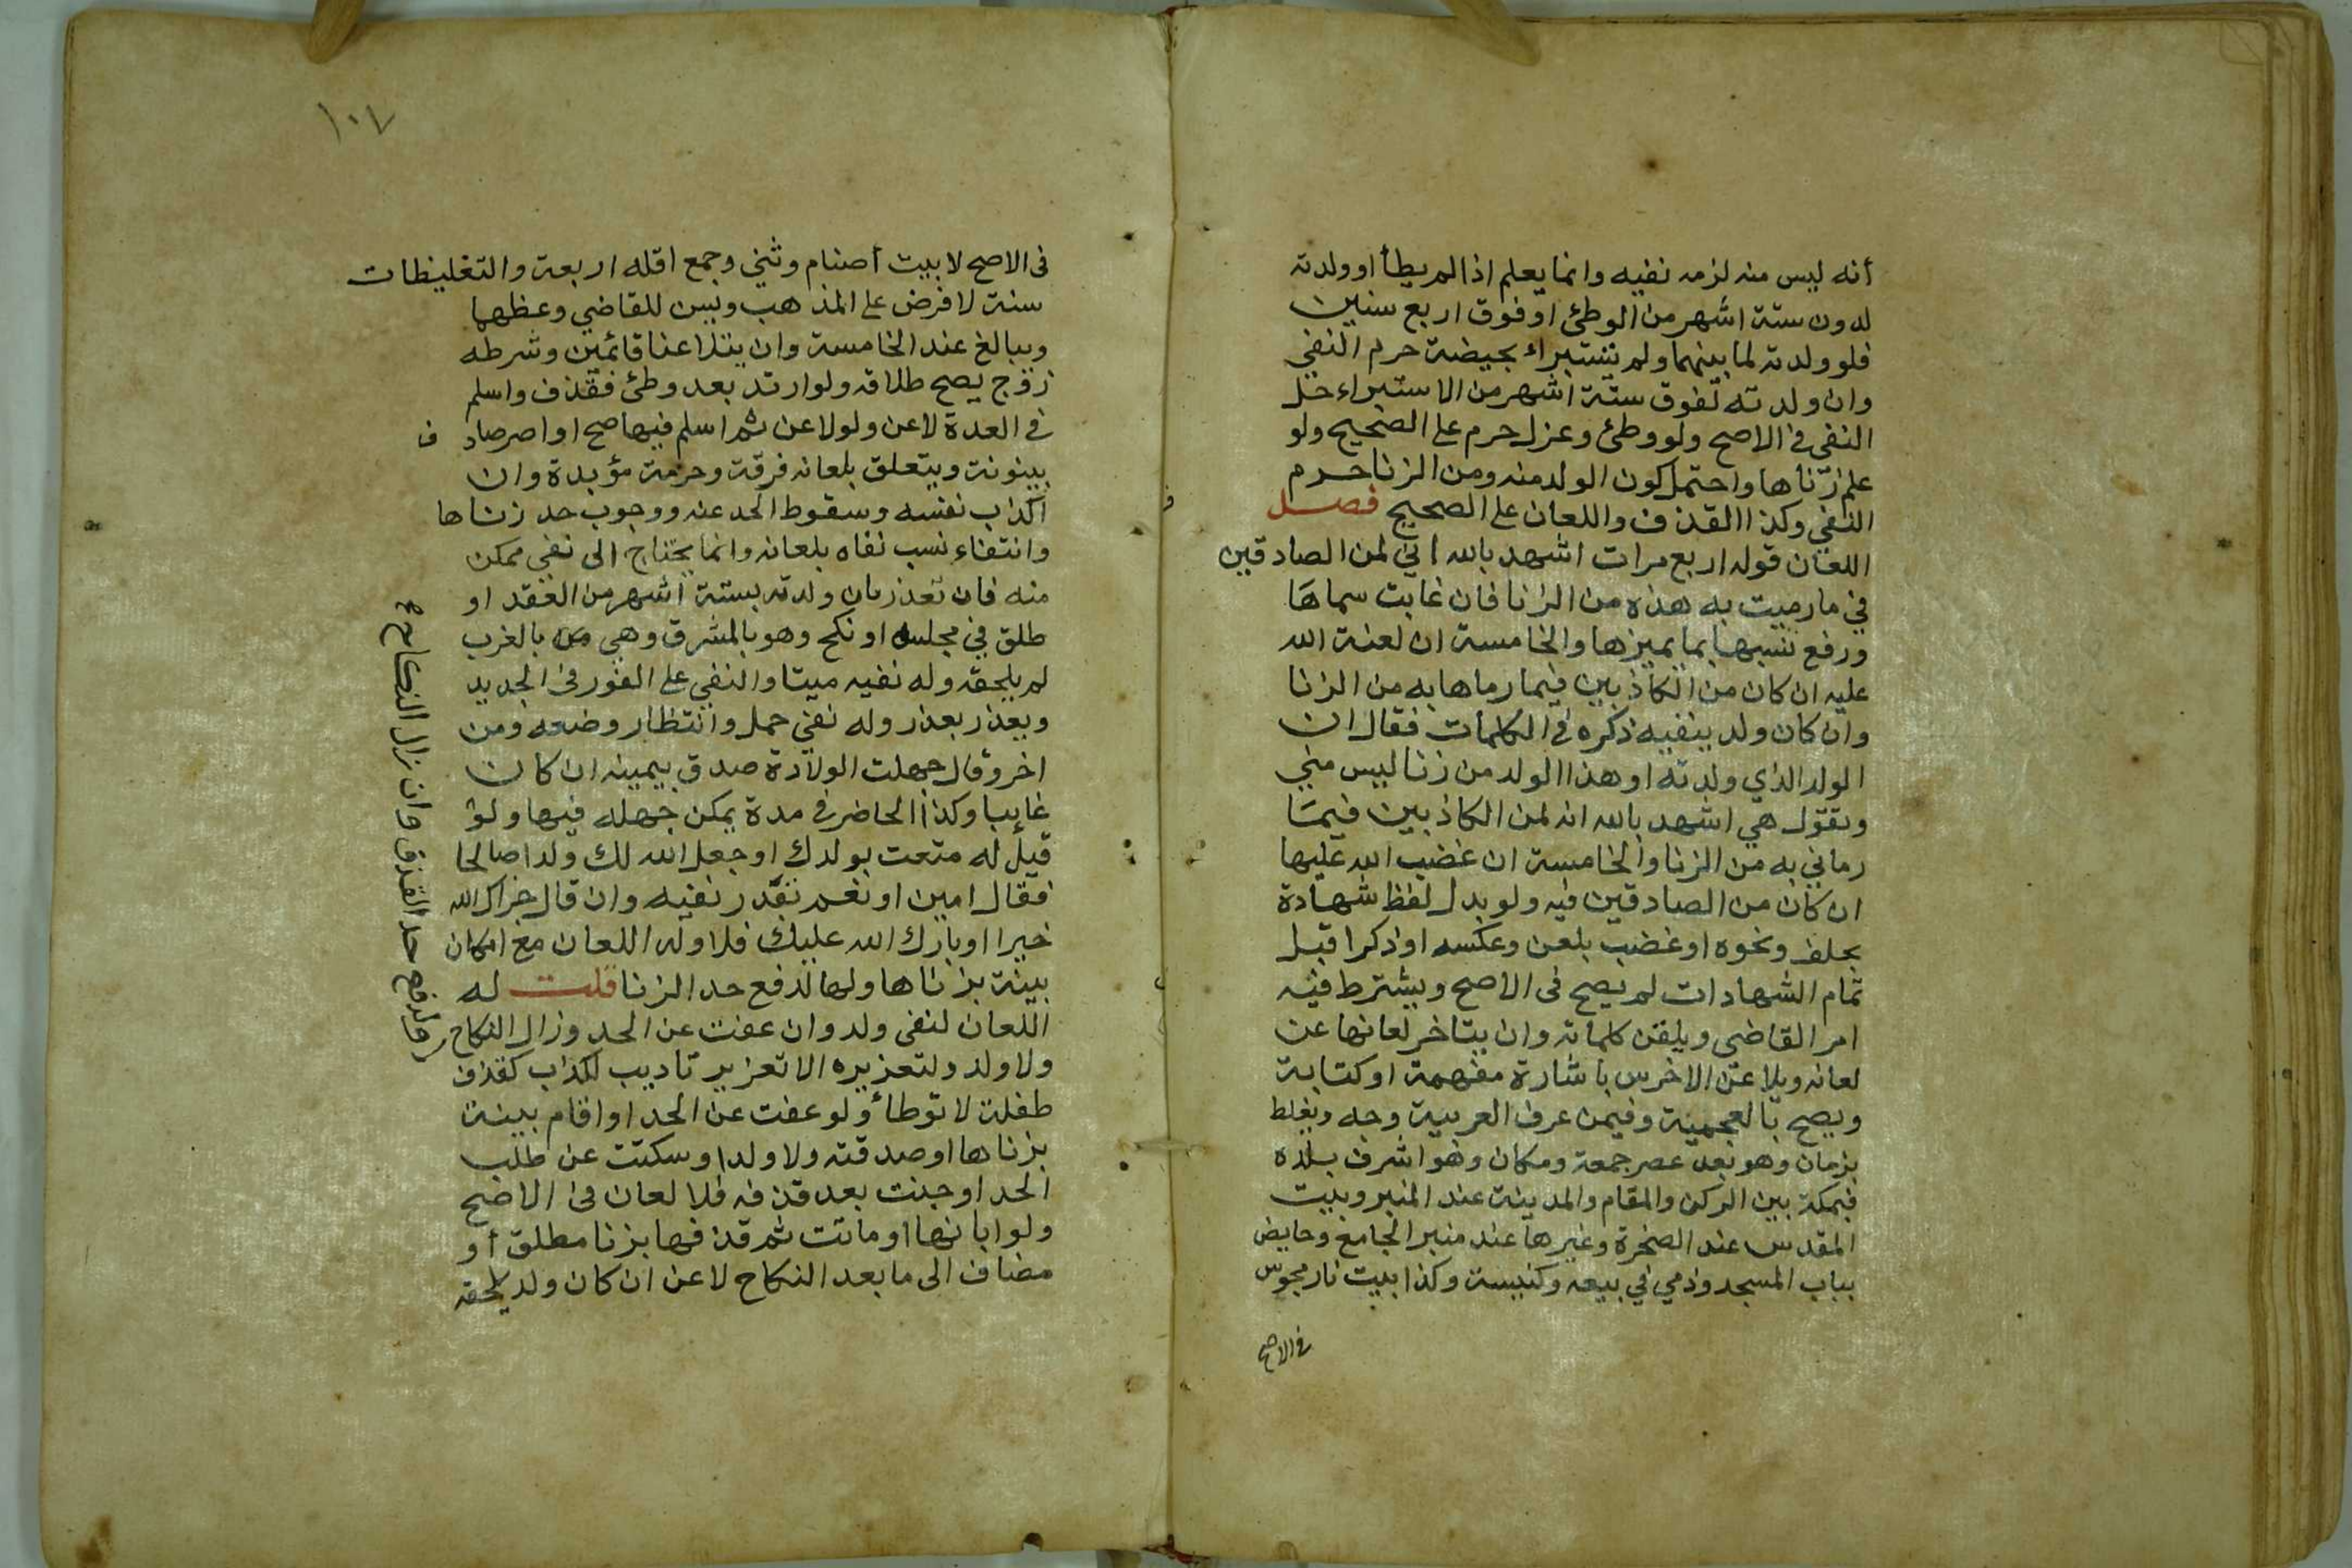 أنه ليس منه لزمه نفيه وانما يعلم اذا لم يطأ او ولدته
لدون ستة اشهر من الوطئ او فوق اربع سنين
فلو ولدته لما بينهما ولم تستبراء بحيضة حرم النفي
وان ولدته لفوق ستة اشهر من الاستبراء حل
النفى فى الاصح ولو وطئ وعزل حرم على الصحيح ولو
علم زناها واحتمل كون الولد منه ومن الزنا حرم
النفي وكذا القذف واللعان على الصحيح فصل
اللعان قوله اربع مرات اشهد بالله اني لمن الصادقين
في ما رميت به هذه من الزنا فان غابت سماها
ورفع نسبها بما يميزها والخامسة ان لعنة الله
عليه ان كان من الكاذبين فيما رماها به من الزنا
وان كان ولد ينفيه ذكره في الكلمات فقال ان
الولد الذي ولدته او هذا الولد من زنا ليس مني
وتقول هي اشهد بالله انه لمن الكاذبين فيما
رماني به من الزنا والخامسة ان غضب الله عليها
ان كان من الصادقين فيه ولو بدل لفظ شهادة
بحلف ونحوه او غضب بلعن وعكسه او ذكرا قبل
تمام الشهادات لم يصح فى الاصح ويشترط فيه
امر القاضى ويلقن كلماته وان يتاخر لعانها عن
لعانه ويلاعن الاخرس باشارة مفهمة او كتابة
ويصح بالعجمية وفيمن عرف العربية وجه ويغلظ
بزمان وهو بعد عصر جمعة ومكان وهو اشرف بلده
فبمكة بين الركن والمقام والمدينة عند المنبر وبيت
المقدس عند الصخرة وغيرها عند منبر الجامع وحايض
بباب المسجد وذمي في بيعه وكنيسة وكذا بيت نار مجوس
فى الاصح
١٠٧
فى الاصح لا بيت أصنام وثني وجمع اقله اربعة والتغليظات
سنة لا فرض على المذهب ويسن للقاضي وعظهما
ويبالغ عند الخامسة وان يتلاعنا قائمين وشرطه
زوج يصح طلاقه ولو ارتد بعد وطئ فقذف واسلم
في العدة لاعن ولو لاعن ثم اسلم فيها صح او اصر صادف
بينونة ويتعلق بلعانه فرقة وحرمة مؤبدة وان
اكذب نفسه وسقوط الحد عنه ووجوب حد زناها
وانتفاء نسب نفاه بلعانه وانما يحتاج الى نفي ممكن
منه فان تعذر بان ولدته بستة اشهر من العقد او
طلق في مجلسه او نكح وهو بالمشرق وهي بالغرب
لم يلحقه وله نفيه ميتا والنفي على الفور فى الجديد
ويعذر بعذر وله نفي حمل وانتظار وضعه ومن
اخر وقال جهلت الولادة صدق بيمينه ان كان
غايبا وكذا الحاضر في مدة يمكن جهله فيها ولو
قيل له متعت بولدك او جعل الله لك ولدا صالحا
فقال امين او نعم تعذر نفيه وان قال جزاك الله
خيرا او بارك الله عليك فلا وله اللعان مع امكان
بينة بزناها ولها لدفع حد الزنا قلت له
اللعان لنفى ولد وان عفت عن الحد وزال النكاح
ولا ولد ولتعزيره الا تعزير تاديب لكذب كقذف
طفلة لا توطأ ولو عفت عن الحد او اقام بينة
بزناها او صدقته ولا ولد او سكتت عن طلب
الحد او جنت بعد قذفه فلا لعان فى الاصح
ولو ابانها او ماتت ثم قذفها بزنا مطلق او
مضاف الى ما بعد النكاح لاعن ان كان ولد يلحقه
ولدفع حد القذف وان زال النكاح